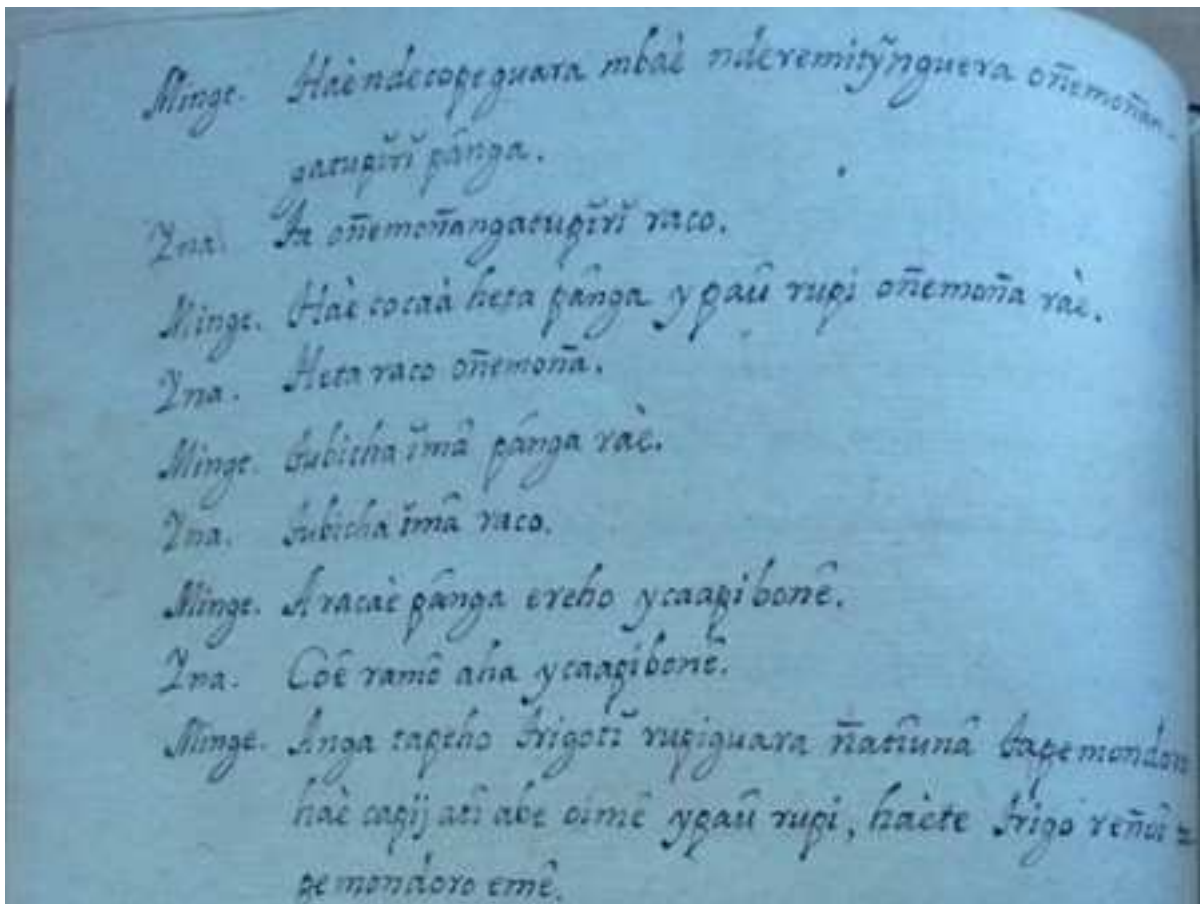 Minge. Haè ndecopeguara mbaè nderemitỹnguera oñemoñan-
gatupĭrĭ pânga.
Yna. Ta oñemoñangatupĭrĭ raco.
Minge. Haè cocaà heta pânga ypaû rupi oñemoña raè.
Yna. Heta raco oñemoña.
Minge. Tubicha ĭmâ pânga raè.
Yna. Tubicha ĭmâ raco.
Minge. Aracaè pânga ereho ycaapibonê.
Yna. Coê ramê aha ycaapibonê.
Minge. Anga tapeho trigotĭ rupiguara ñatiunâ tapemondoro
haè capij atî abe oimê ypaû rupi, haète trigo reñôi =
pemondoro emê.